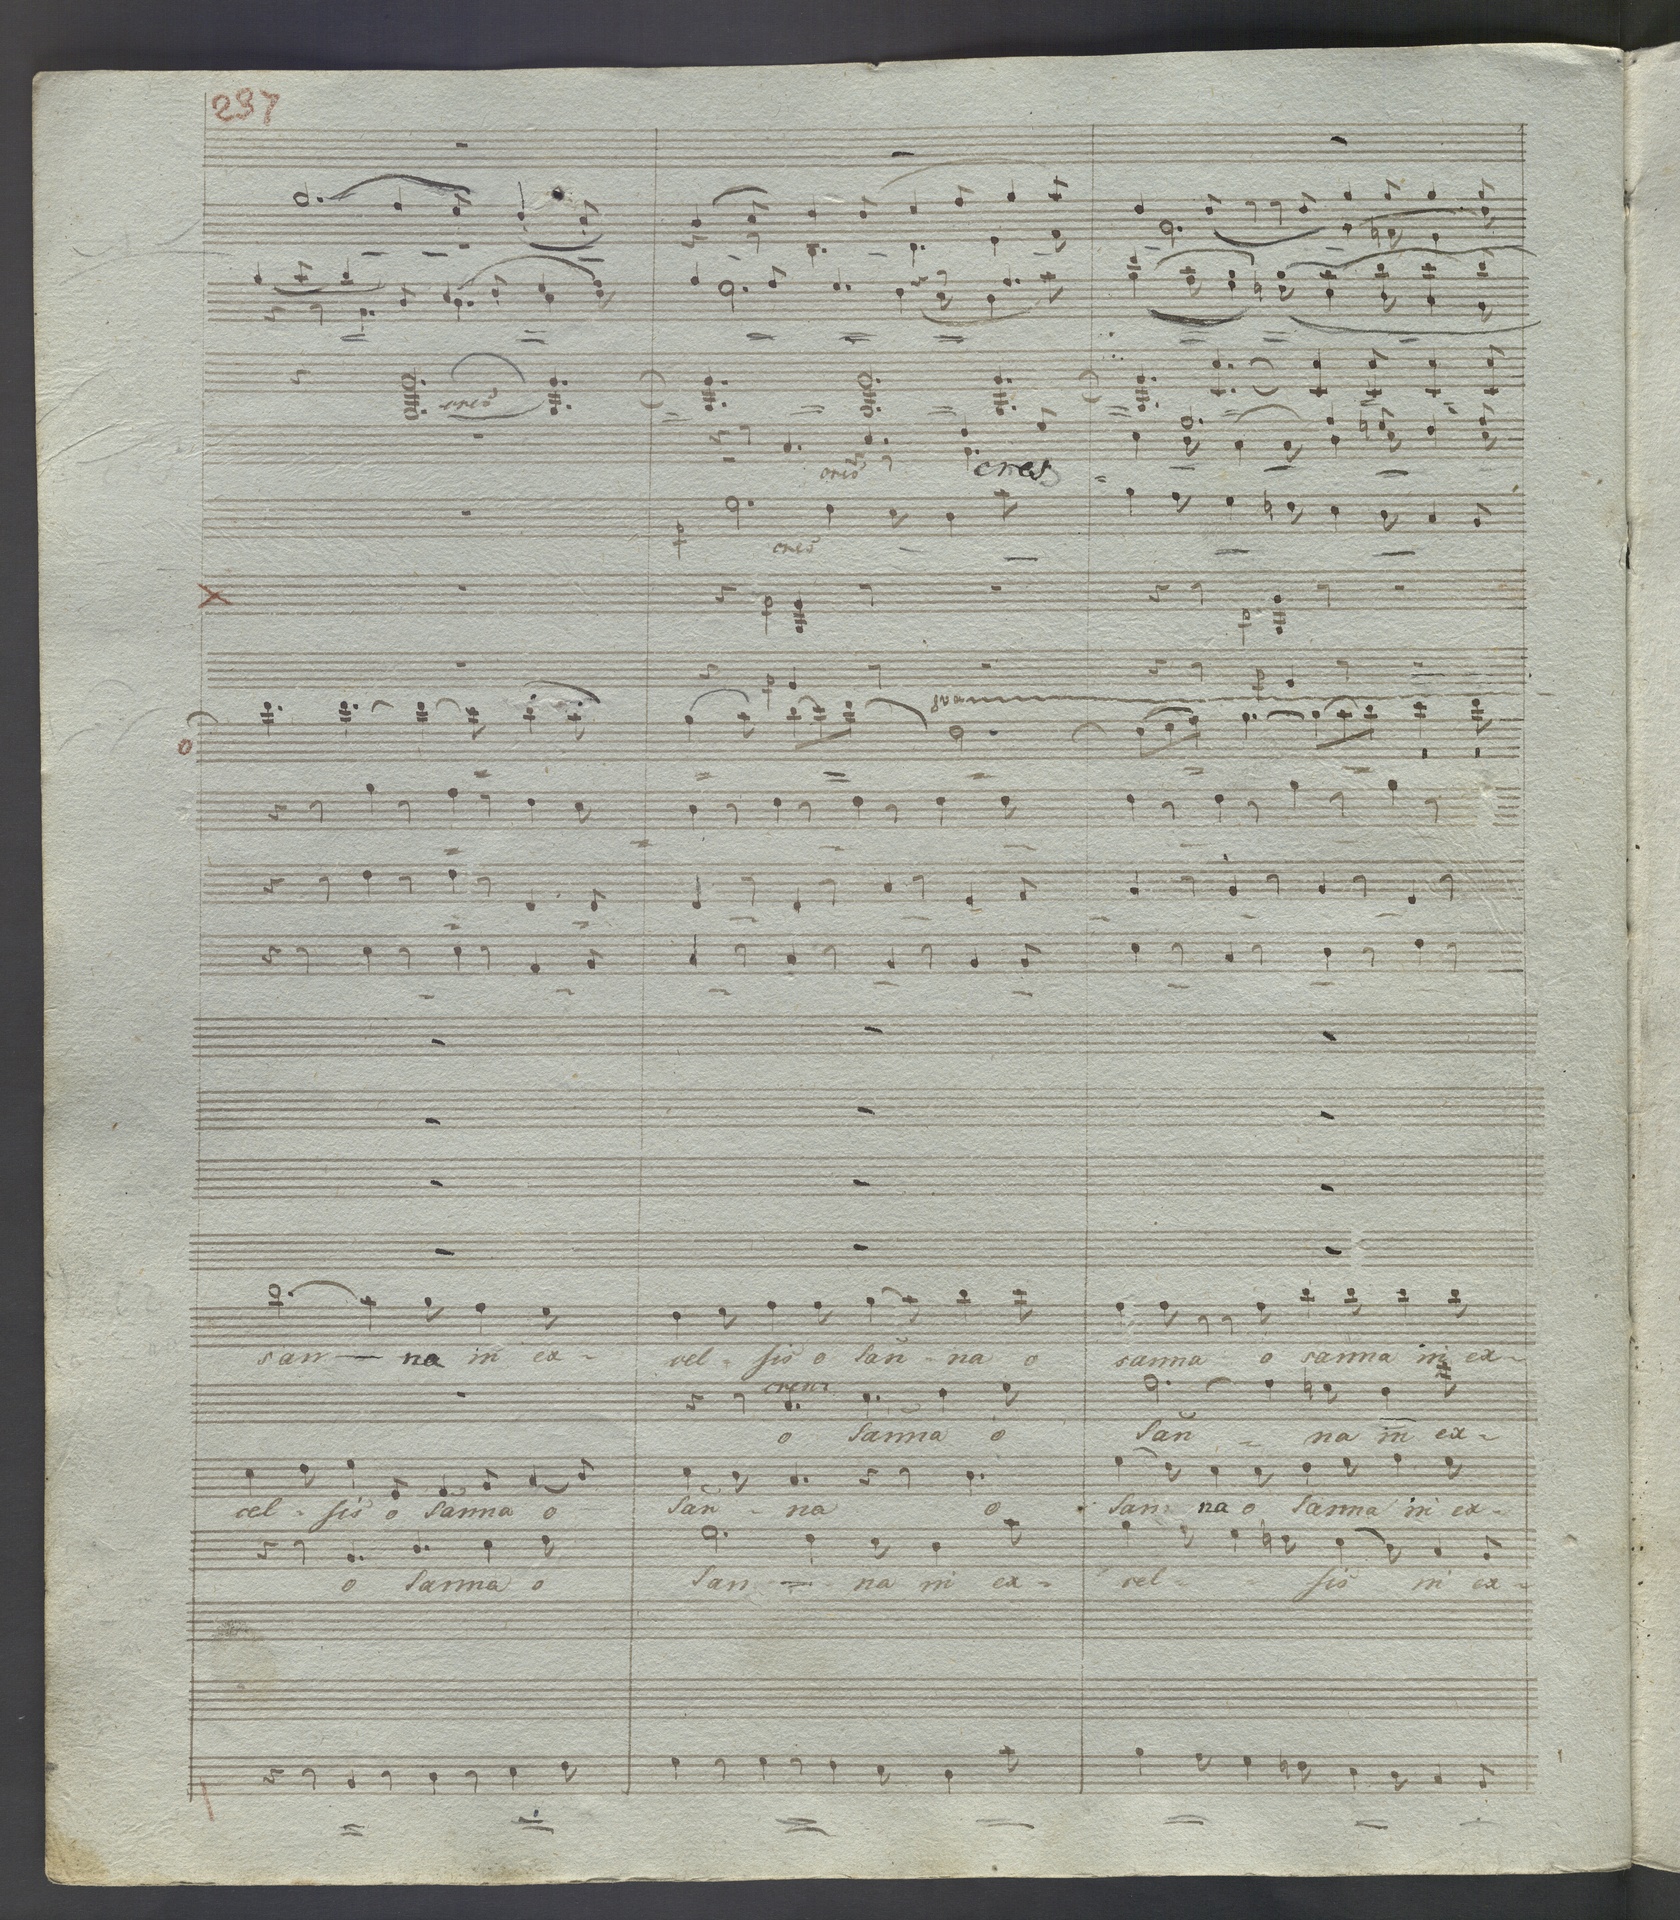 297
cres
cres cres
cres
8va
san — na in ex -
vel - sis o san - na o
sanna o sanna in ex -
cresc
o sanna o
san - na in ex -
vel - sis o sanna o
san - na o
san na o sanna in ex -
o sanna o
san — na in ex -
vel - sis in ex -